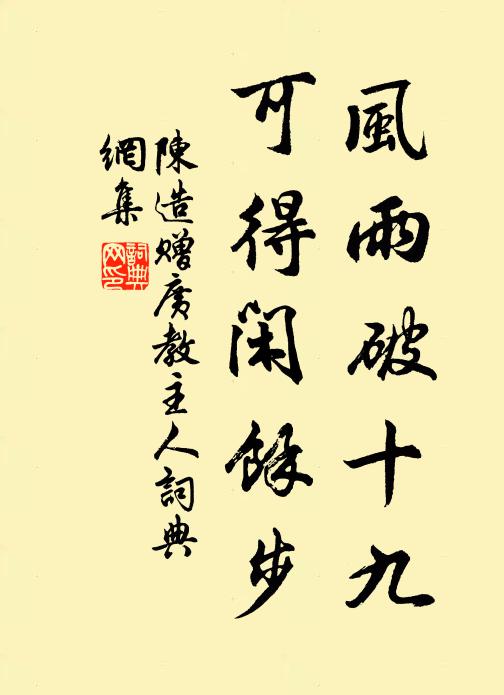 風雨破十九
可得閑餘步
陳造贈廣教主人詞典
網集
詞典網印